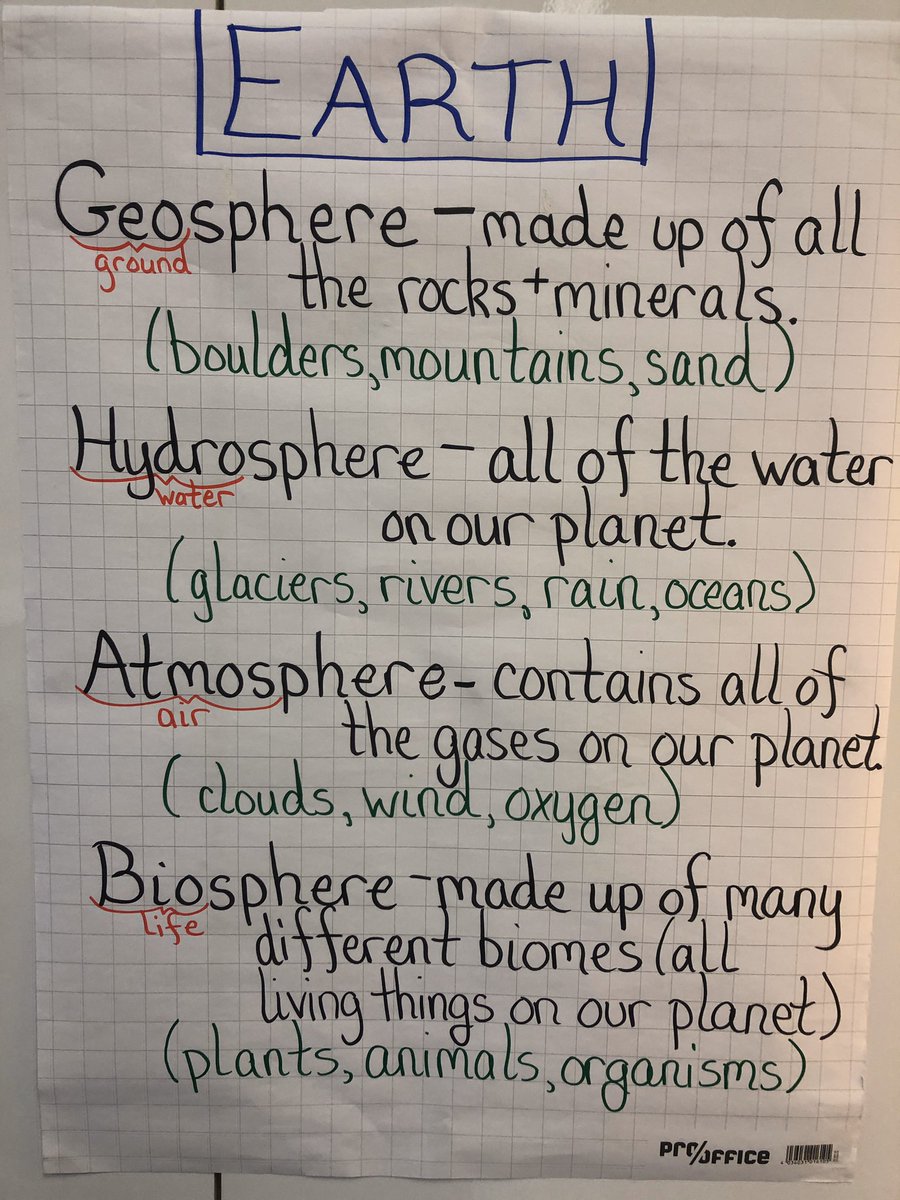 EARTH
Geosphere - made up of all
ground
the rocks + minerals.
(boulders, mountains, sand)
Hydrosphere - all of the water
water
on our planet.
(glaciers, rivers, rain, oceans)
Atmosphere - contains all of
air
the gases on our planet.
(clouds, wind, oxygen)
Biosphere - made up of many
life
different biomes (all
living things on our planet)
(plants, animals, organisms)
PRO/OFFICE